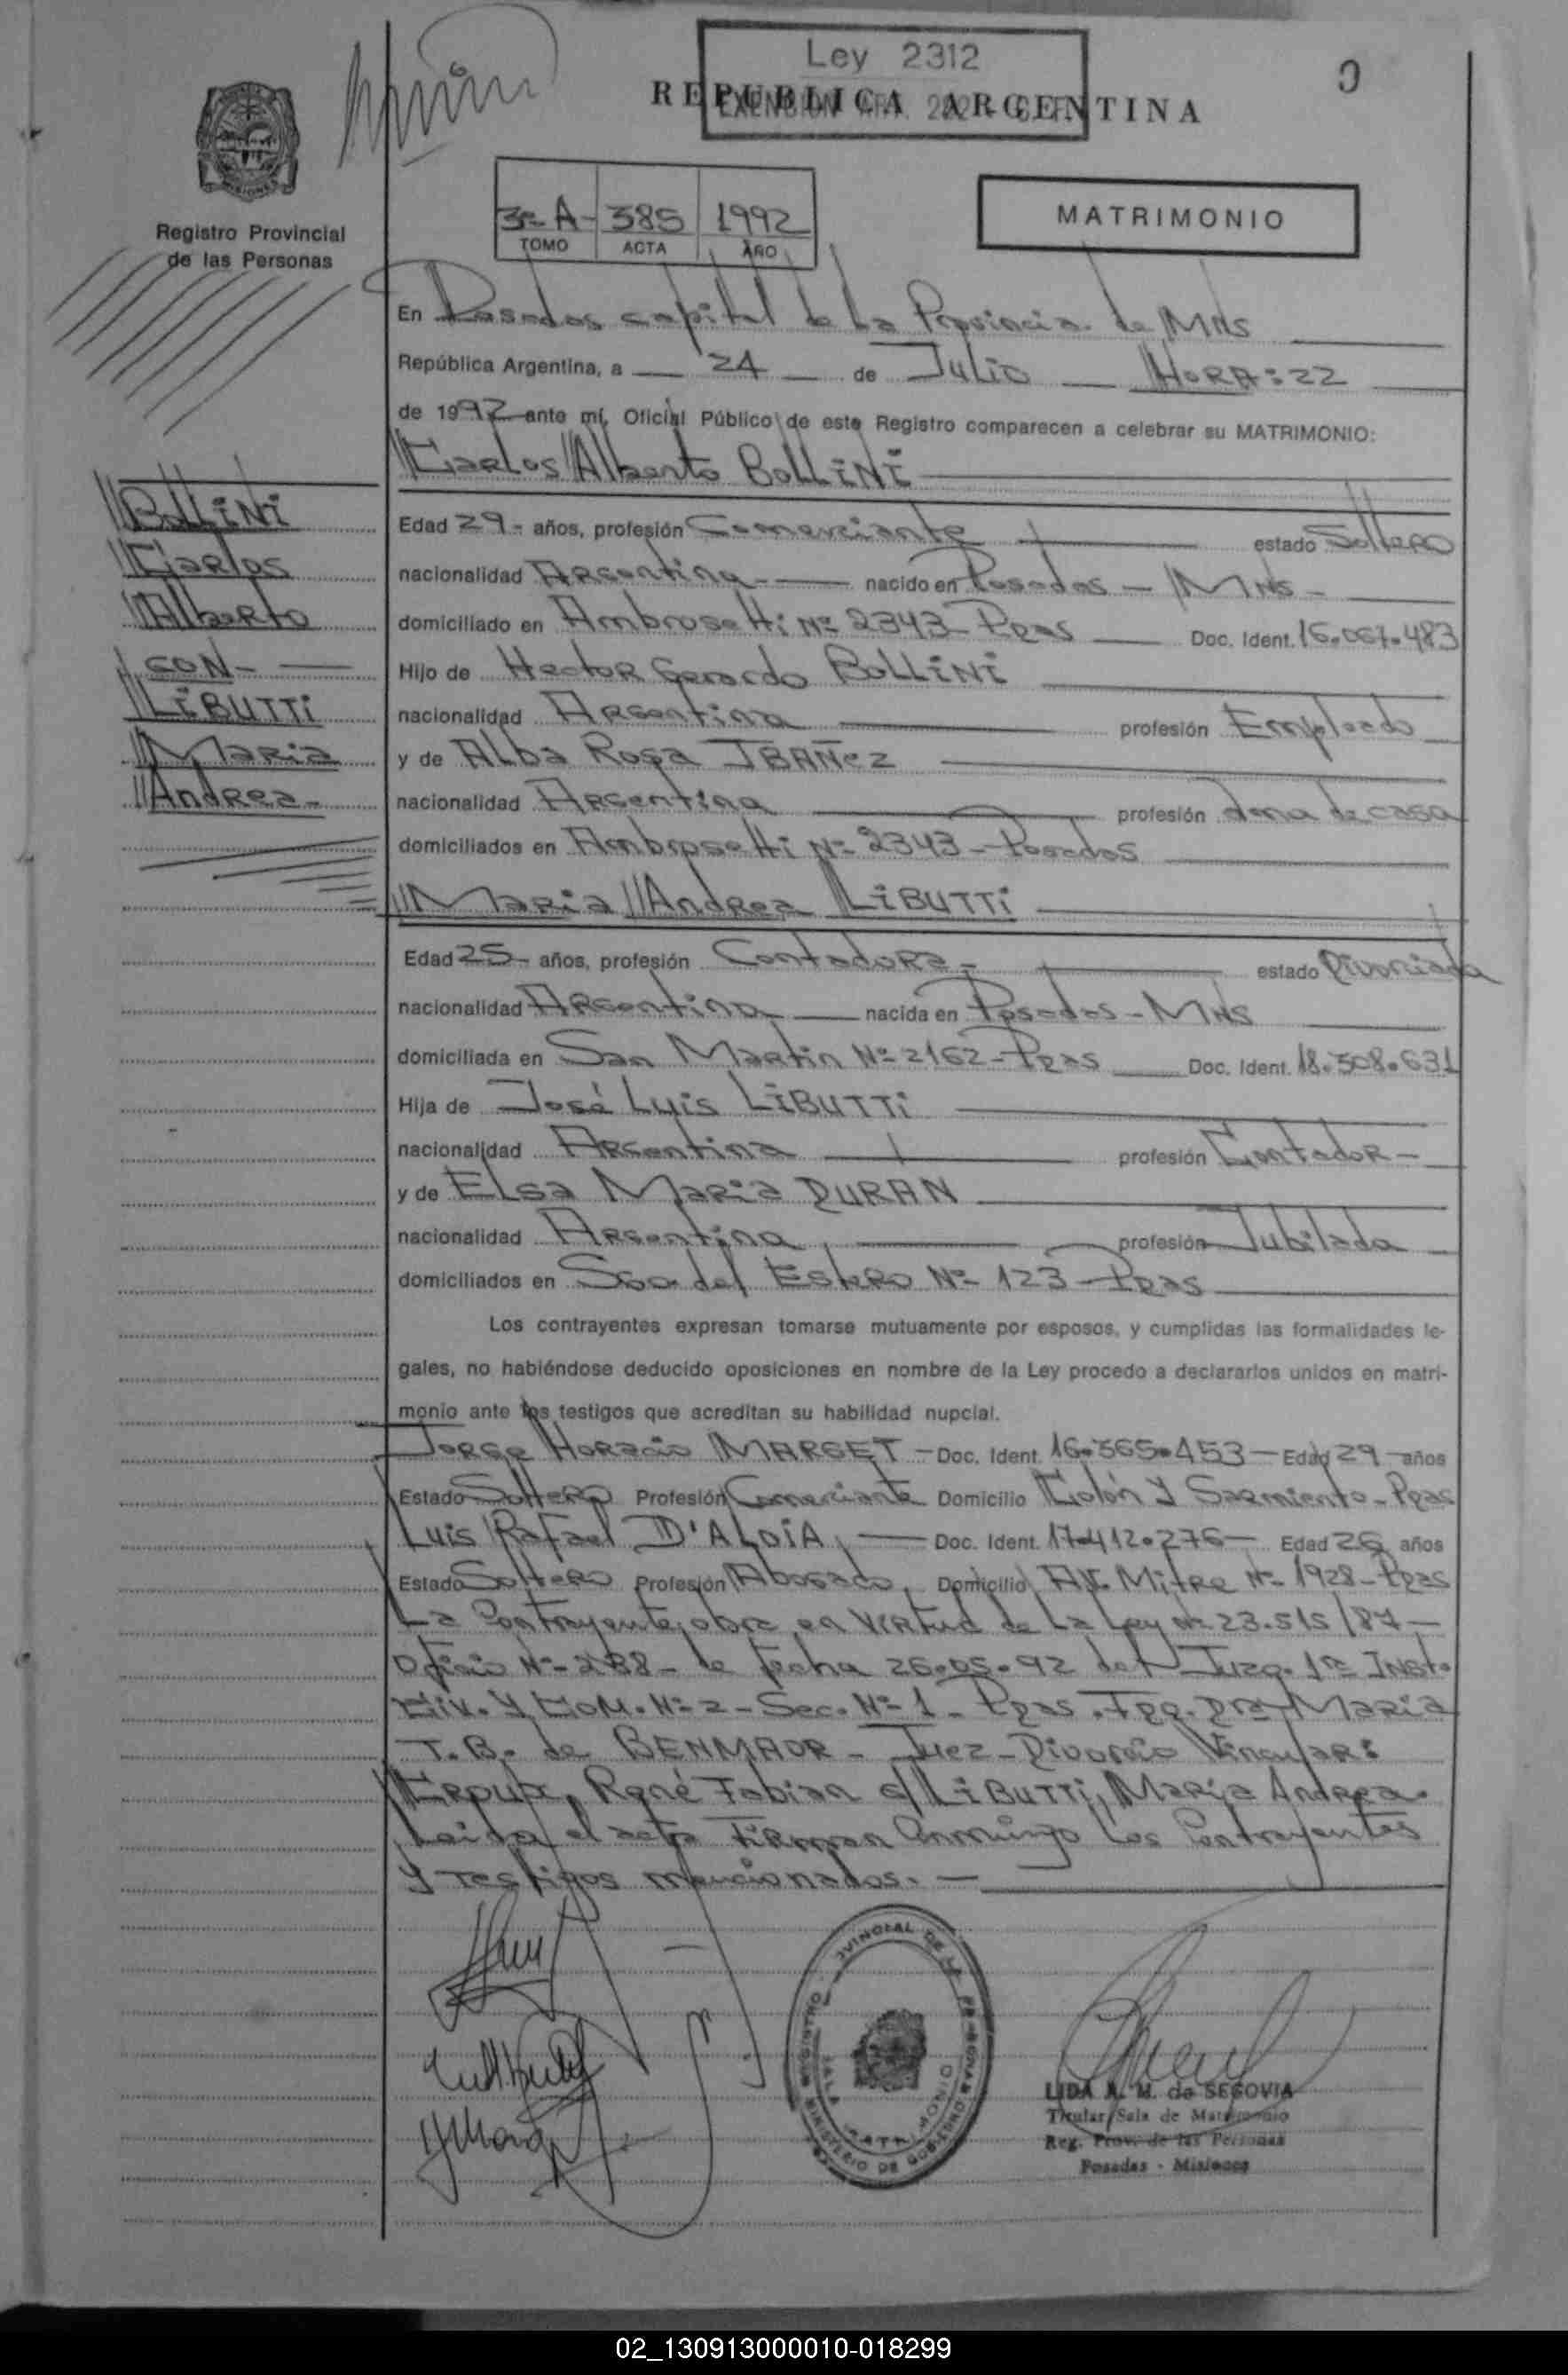 Ley 2312
REPUBLICA ARGENTINA
Registro Provincial
de las Personas
3º A- 385 1992
TOMO ACTA AÑO
MATRIMONIO
En Posadas capital de La Provincia de MNS
República Argentina, a 24 de Julio HORA: 22
de 1992 ante mí, Oficial Público de este Registro comparecen a celebrar su MATRIMONIO:
Carlos Alberto BOLLINI
BOLLINI
Carlos
Alberto
CON-
LIBUTTI
Maria
Andrea-
Edad 29- años, profesión Comerciante estado Soltero
nacionalidad Argentina- nacido en Posadas - MNS -
domiciliado en Ambrosetti Nº 2343- Pdas Doc. Ident. 16.067.483
Hijo de Hector Gerardo BOLLINI
nacionalidad Argentina profesión Empleado
y de Alba Rosa IBAÑEZ
nacionalidad Argentina profesión Ama de casa
domiciliados en Ambrosetti Nº 2343- Posadas
Maria Andrea LIBUTTI
Edad 25- años, profesión Contadora- estado Divorciada
nacionalidad Argentina nacida en Posadas - MNS
domiciliada en San Martin Nº 2162- Pdas Doc. Ident. 18.308.631
Hija de José Luis LIBUTTI
nacionalidad Argentina profesión Contador-
y de Elsa Maria DURAN
nacionalidad Argentina profesión Jubilada
domiciliados en Sgo del Estero Nº 123- Pdas
Los contrayentes expresan tomarse mutuamente por esposos, y cumplidas las formalidades le-
gales, no habiéndose deducido oposiciones en nombre de la Ley procedo a declararlos unidos en matri-
monio ante los testigos que acreditan su habilidad nupcial.
Jorge Horacio MARGET - Doc. Ident. 16.365.453- Edad 29 años
Estado Soltero Profesión Comerciante Domicilio Colón Y Sarmiento- Pdas
Luis Rafael D'ALOIA, Doc. Ident. 17.412.276- Edad 26 años
Estado Soltero Profesión Abogado, Domicilio Av. Mitre Nº 1928- Pdas
La Contrayente, obra en virtud de La Ley Nº 23.515/87-
Oficio Nº 288- de fecha 26.05.92 del Juzg. 1ra Inst.
Civ. y Com. Nº 2- Sec. Nº 1- Pdas. Fdo. Dra Maria
T.B. de BENMAOR- Juez- Divorcio Vincular:
René Fabian c/ LIBUTTI, Maria Andrea.
Leida el acta Firman Conmigo Los Contrayentes
y testigos mencionados.-
REGISTRO PROVINCIAL DE LAS PERSONAS
SALA MATRIMONIO
MINISTERIO DE GOBIERNO
LIDA A. M. de SEGOVIA
Titular Sala de Matrimonio
Reg. Prov. de las Personas
Posadas - Misiones
02_130913000010-018299